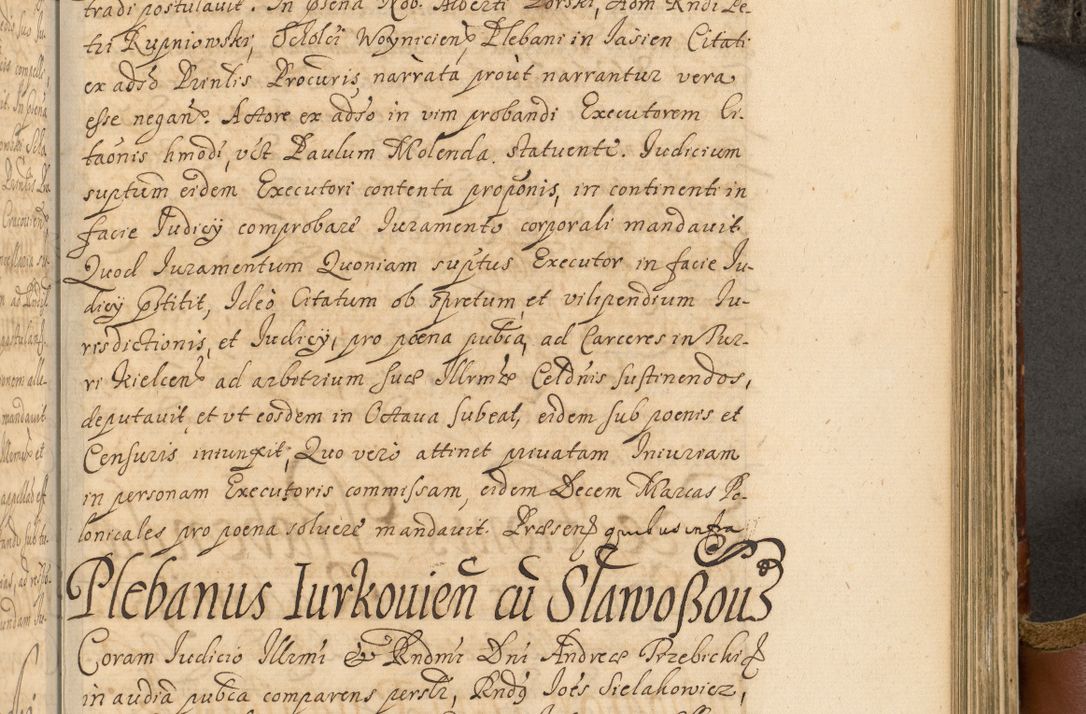 tradi postulavit. In pñsena Nob. Alberti Zorski, Adm Rndi Pe-
tri Kupniowski, Scholci Woyniciens Plebani in Iasien Citati
ex adso Prinlis Procuris, narrata prout narrantur vera
esse negant. Actore ex adso in vim probandi Executorem Ci-
taonis hmodi, vst Paulum Molenda. statuente. Iudicium
suptum eidem Executori contenta proponis, in continenti in
facie Iudicy comprobare Iuramento corporali mandavit
Quod Iuramentum Quoniam suptus Executor in facie Iu-
dicy pstitit, Ideo Citatum ob spretum, et vilipendium Iu-
risdictionis, et Iudicy, pro poena pubca, ad Carceres in Tur-
ri Kielcens ad arbitrium suæ Illrmæ Celdnis sustinendos,
deputavit, et vt eosdem in Octava subeat, eidem sub poenis et
Censuris iniunxit, Quo vero attinet privatam Iniuriam
in personam Executoris commissam, eidem Decem Marcas Po-
lonicales pro poena solvere mandavit. Præsen: quibus infra
Plebanus Iurkovien cū Slawoßov
Coram Iudicio Illrmi & Rndmi Dni Andreæ Trzebicki
in audia pubca comparens persr, Rndg Ioes Sielakowicz,